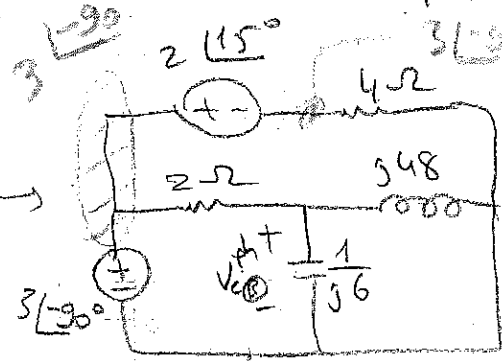 3 ∠-90
2 ∠15°
3∠-9
+ -
4Ω
2Ω
j48
+
-
1/j6
3∠-90°